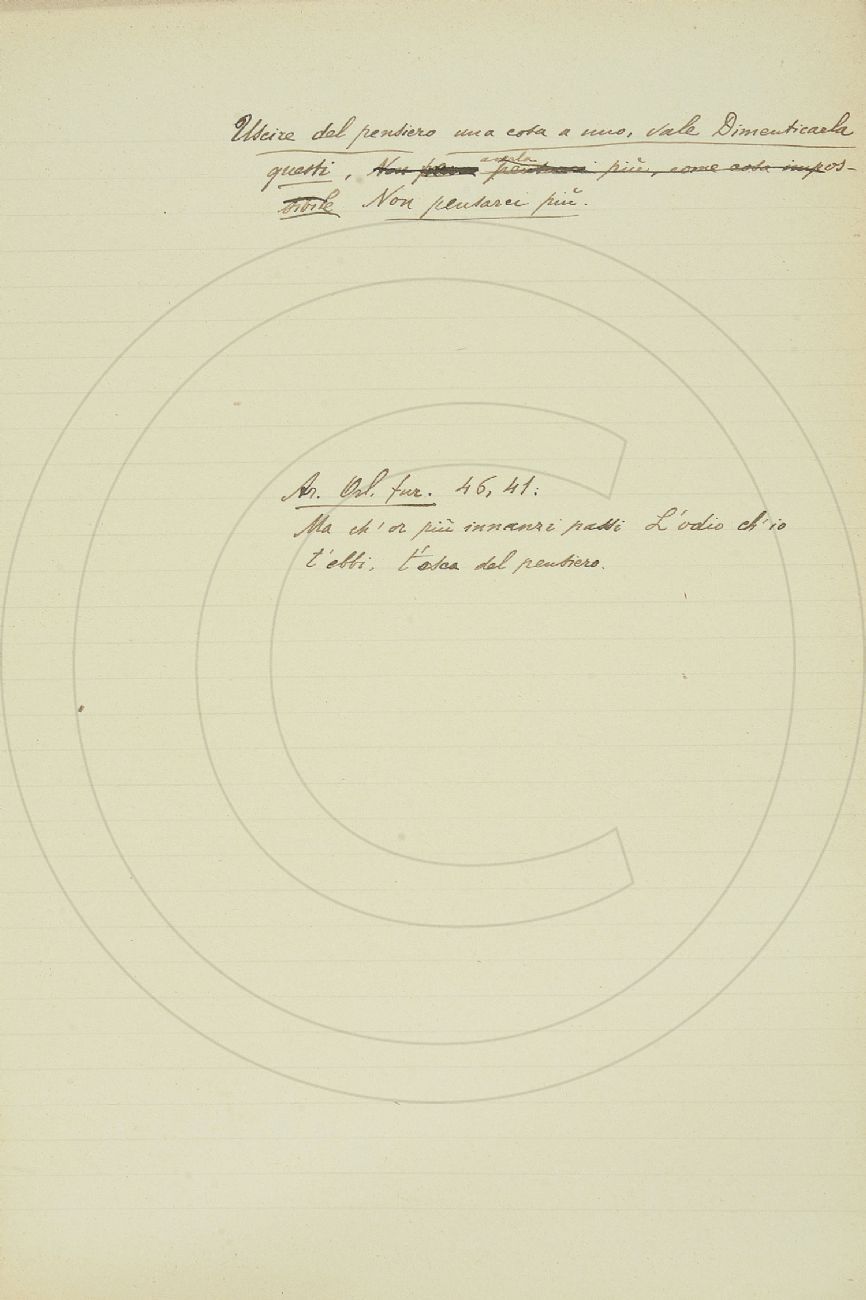 Uscire del pensiero una cosa a uno, vale Dimenticarla
questi, Non pensarci più, come cosa impos-
sibile Non pensarci più.
Ar. Orl. fur. 46, 41:
Ma ch'or più innanzi passi L'odio ch'io
t'ebbi, t'esca del pensiero.